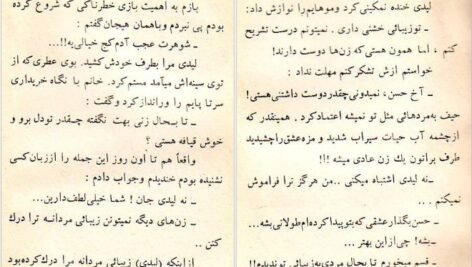 لیدی خنده نمکینی کرد وموهایم را نوازش داد:
ـ توزیبائی خشنی داری . نمیتونم درست تشریح
کنم ، اما همون هستی که زن‌ها دوست دارند!
خواستم ازش تشکر کنم مهلت نداد :
ـ آخ حسن، نمیدونی چقدر دوست داشتنی هستی!
حیف به‌مردهائی مثل تو نمیشه اعتماد کرد . همینقدر که
از چشمه آب حیات سیراب شدید و مزه عشق را چشیدید
طرف براتون یك زن عادی میشه !!
ـ نه لیدی اشتباه میکنی .. من هرگز ترا فراموش
نمیکنم . .
ـ حسن بگذار عشقی که بتو پیدا کرده‌ام طولانی بشه ..
بشه! چی‌از این بهتر ...
ـ قسم میخورم تا بحال مردی به‌زیبائی تو ندیدم!!
بازم به اهمیت بازی خطرناکی که شروع کرده
بودم پی نبردم وباهمان هیجان گفتم :
ـ شوهرت عجب آدم کج خیالی‌یه!!...
لیدی مرا بطرف خودش کشید. بوی عطری که از
توی سینه‌اش میآمد مستم کرد. خانم با نگاه خریداری
سرتا پایم را ورانداز کرد وگفت :
ـ تا بحال زنی بهت نگفته چقدر تودل برو و
خوش قیافه هستی ؟
واقعاً هم تا اون روز این جمله را اززبان کسی
نشنیده بودم خندیدم وجواب دادم :
ـ نه لیدی جان ! شما خیلی لطف‌دارین...
ـ زن‌های دیگه نمیتونن زیبائی مردانه ترا درك
کنن ..
از اینکه (لیدی) زیبائی مردانه مرا درك‌کرده‌بود